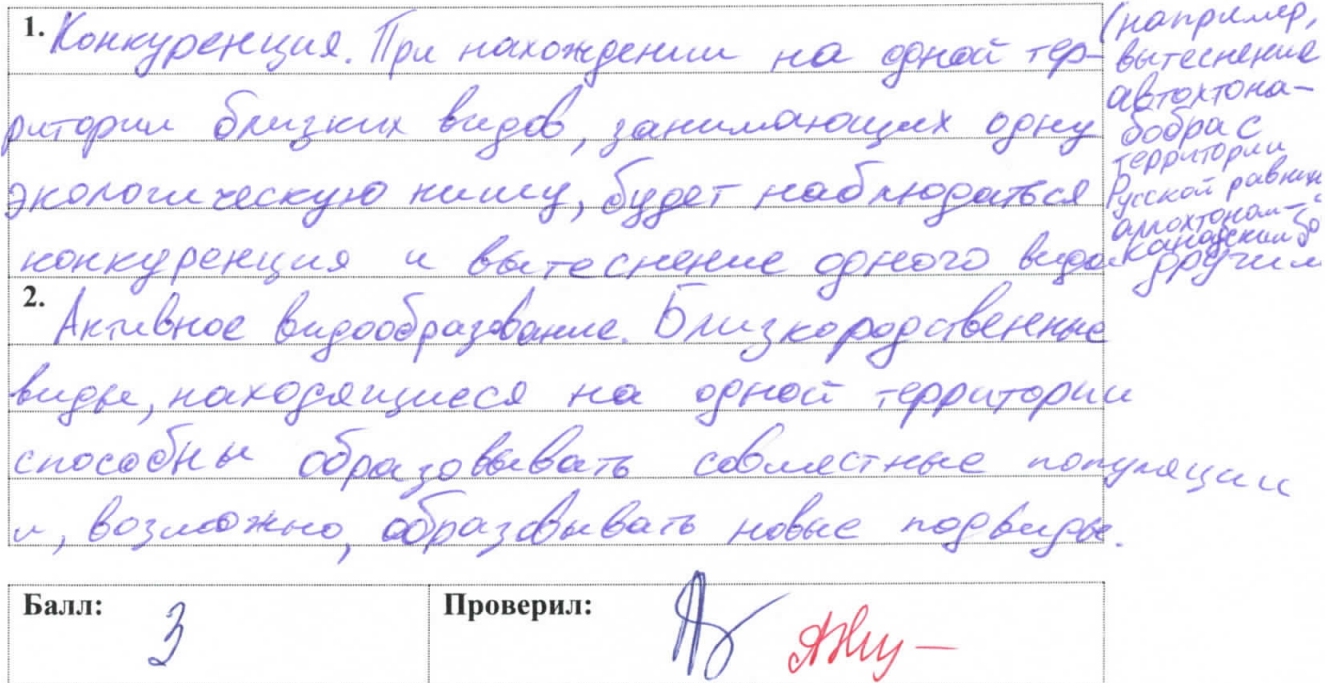 1. Конкуренция. При нахождении на одной тер-
ритории близких видов, занимающих одну
экологическую нишу, будет наблюдаться
конкуренция и вытеснение одного вида другим
(например,
вытеснение
автохтона-
бобра с
территории
Русской равнины
аллохтоном-
канадским
2.
Активное видообразование. Близкородственные
виды, находящиеся на одной территории
способны образовывать совместные популяции
и, возможно, образовывать новые подвиды.
Балл: 3 Проверил: